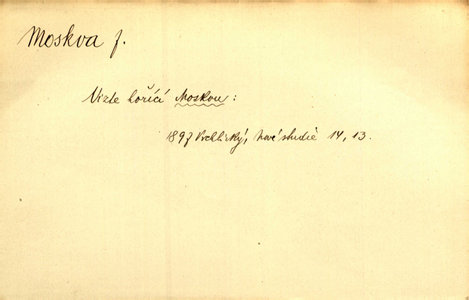 Moskva f.
Vizte hořící Moskou:
1897 Vrchlický, Nové studie 14, 13.